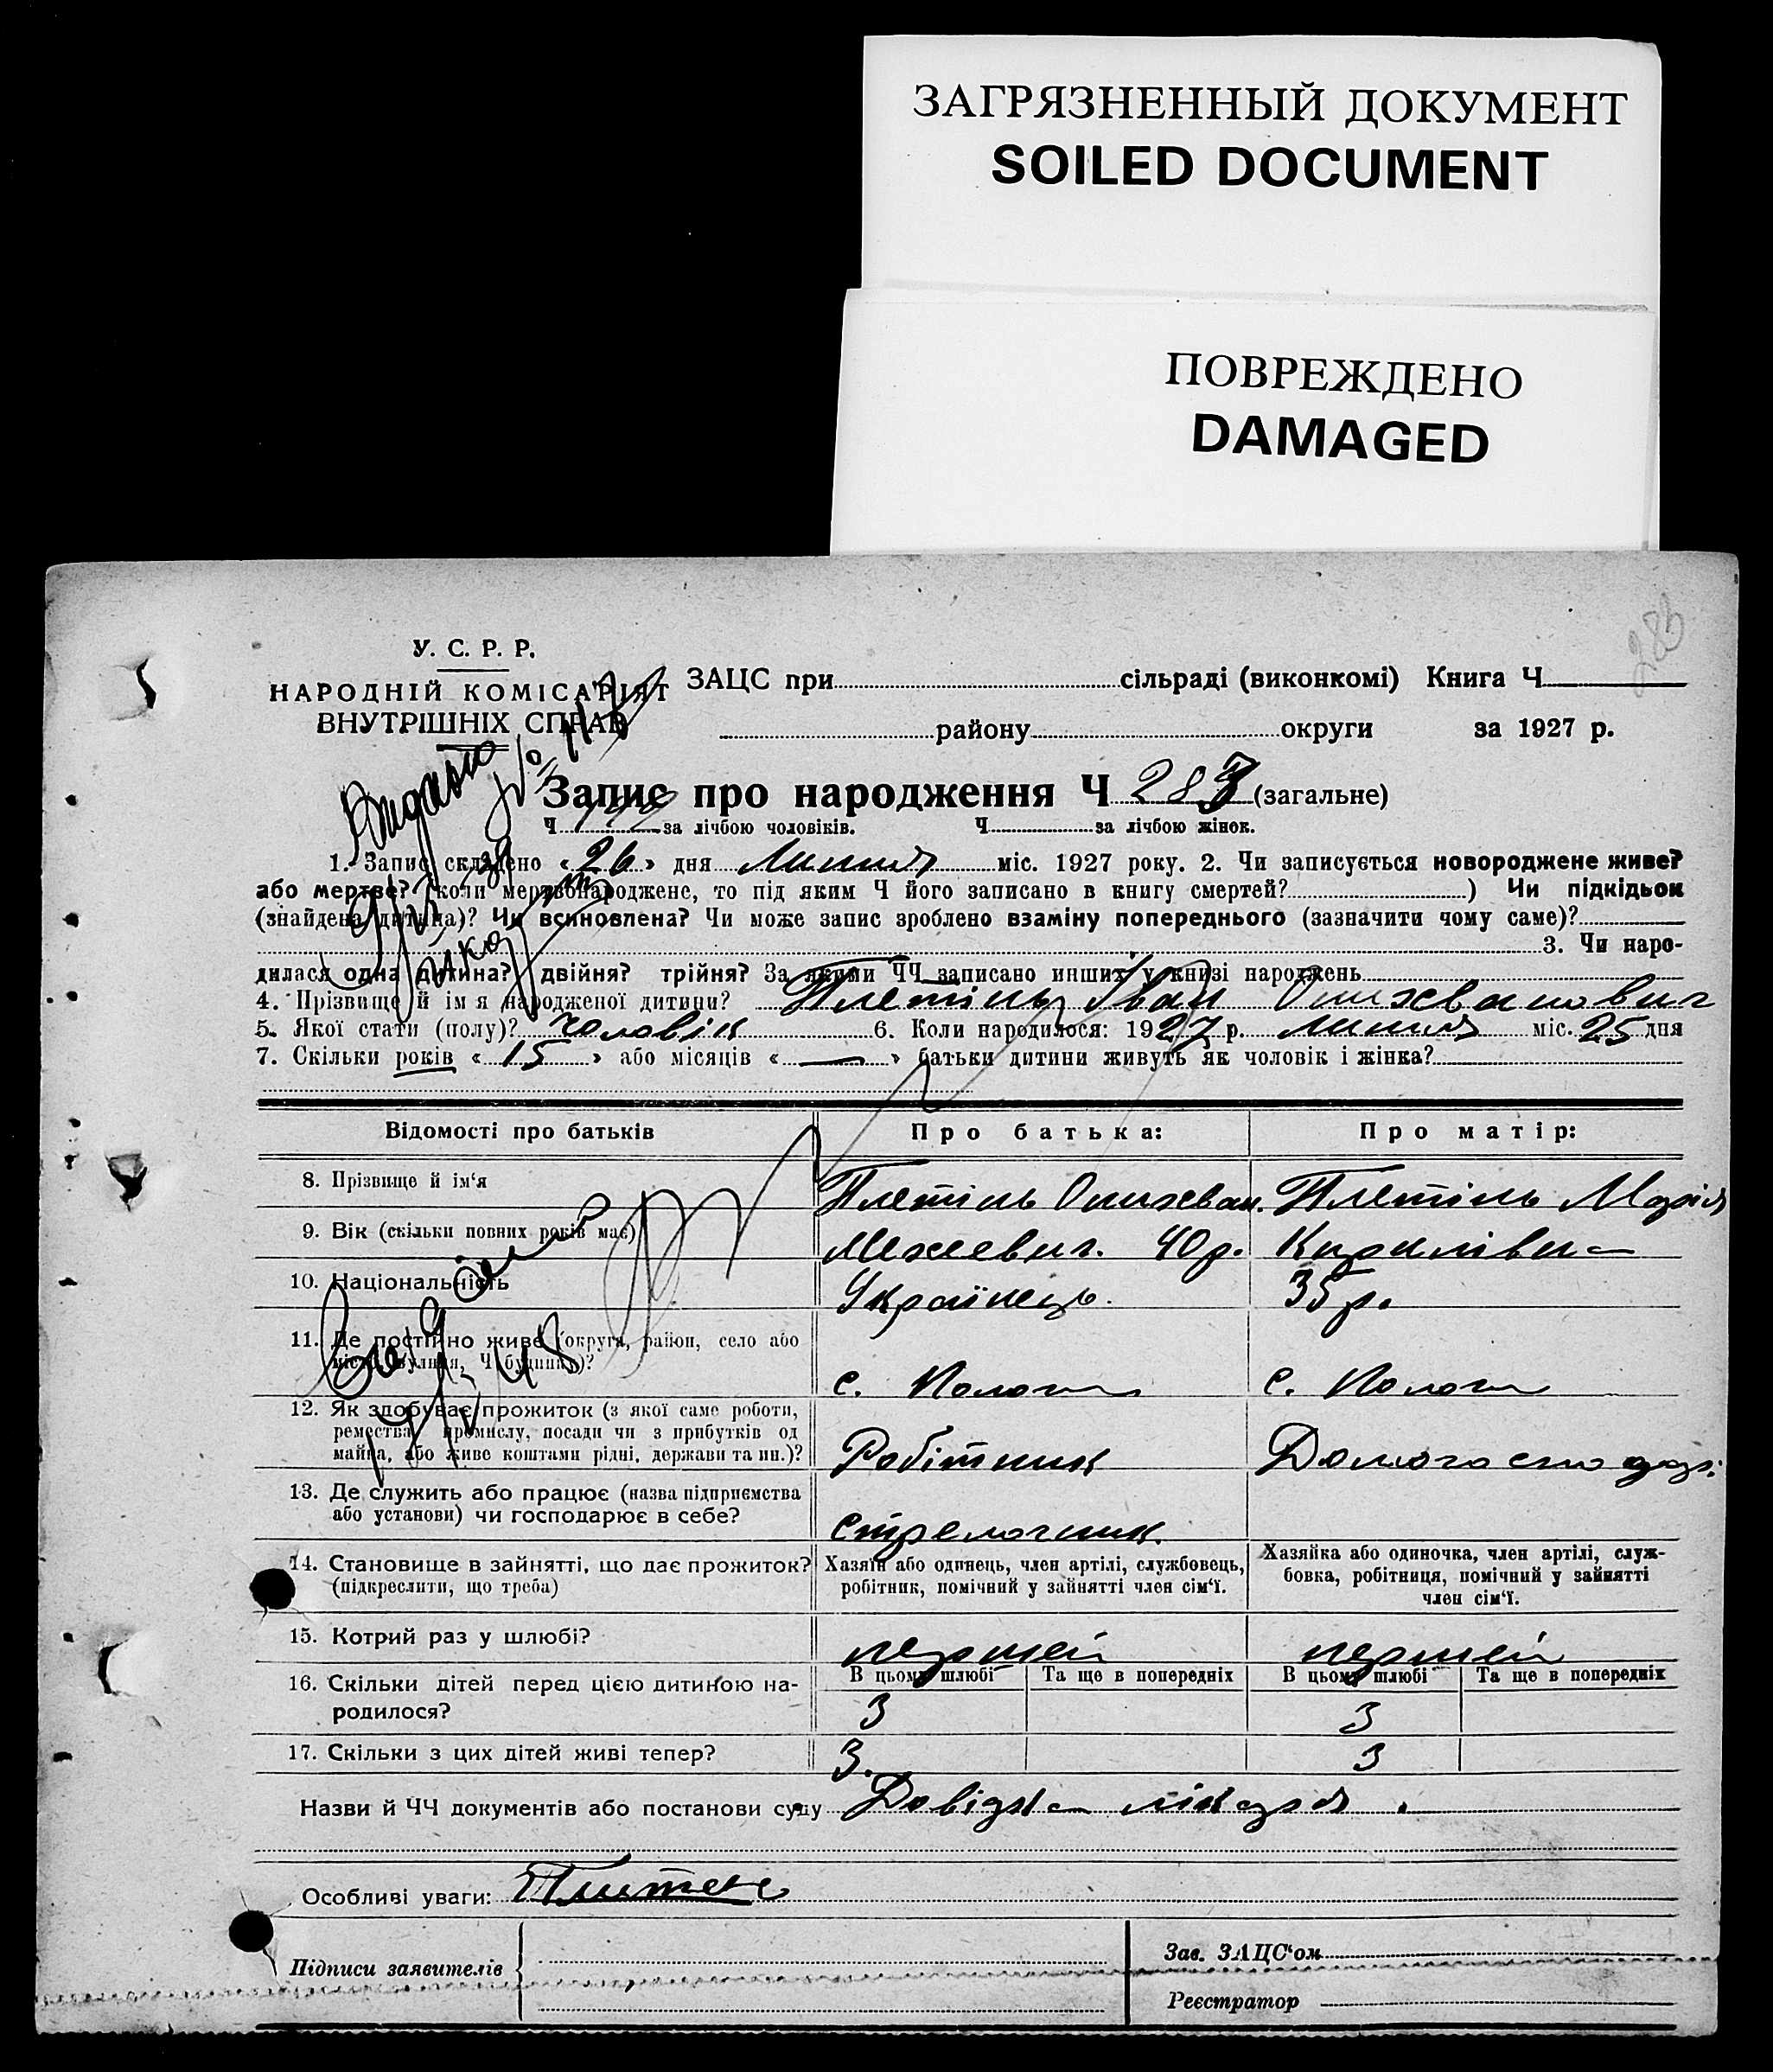 ЗАГРЯЗНЕННЫЙ ДОКУМЕНТ
SOILED DOCUMENT
ПОВРЕЖДЕНО
DAMAGED
У. С. Р. Р.
НАРОДНІЙ КОМІСАРІЯТ
ВНУТРІШНІХ СПРАВ
ЗАЦС при сільраді (виконкомі) Книга Ч
району округи за 1927 р.
Запис про народження Ч 283 (загальне)
Ч за лічбою чоловіків. Ч за лічбою жінок.
1. Запис складено «26» дня Липня міс. 1927 року. 2. Чи записується новороджене живе?
або мертве? (коли мертвонароджене, то під яким Ч його записано в книгу смертей? ) Чи підкідьок
(знайдена дитина)? Чи всиновлена? Чи може запис зроблено взаміну попереднього (зазначити чому саме)?
3. Чи наро-
дилася одна дитина? двійня? трійня? За якими ЧЧ записано инших у книзі народжень
4. Прізвище й ім'я народженої дитини? Плетінь Іван
5. Якої стати (полу)? чоловік 6. Коли народилося: 1927 р. Липня міс. 25 дня
7. Скільки років «15» або місяців «—» батьки дитини живуть як чоловік і жінка?
Відомості про батьків Про батька: Про матір:
8. Прізвище й ім'я Плетінь Плетінь Марія
9. Вік (скільки повних років має) 40 р. Кирилівна
10. Національність Українець. 35 р.
11. Де постійно живе (округа, район, село або
місто, вулиця, Ч будинку)? с. Пологи с. Пологи
12. Як здобуває прожиток (з якої саме роботи,
ремества, промислу, посади чи з прибутків од
майна, або живе коштами рідні, держави та ин.)? Робітник
13. Де служить або працює (назва підприємства
або установи) чи господарює в себе? стрелочник.
14. Становище в зайнятті, що дає прожиток?
(підкреслити, що треба)
Хазяїн або одинець, член артілі, службовець,
робітник, помічний у зайнятті член сім'ї.
Хазяйка або одиночка, член артілі, служ-
бовка, робітниця, помічний у зайнятті
член сім'ї.
15. Котрий раз у шлюбі? першей першей
16. Скільки дітей перед цією дитиною на-
родилося?
В цьому шлюбі Та ще в попередніх В цьому шлюбі Та ще в попередніх
3 3
17. Скільки з цих дітей живі тепер? 3. 3
Назви й ЧЧ документів або постанови суду Довідка лікаря.
Особливі уваги:
Підписи заявителів
Зав. ЗАЦС'ом
Реєстратор